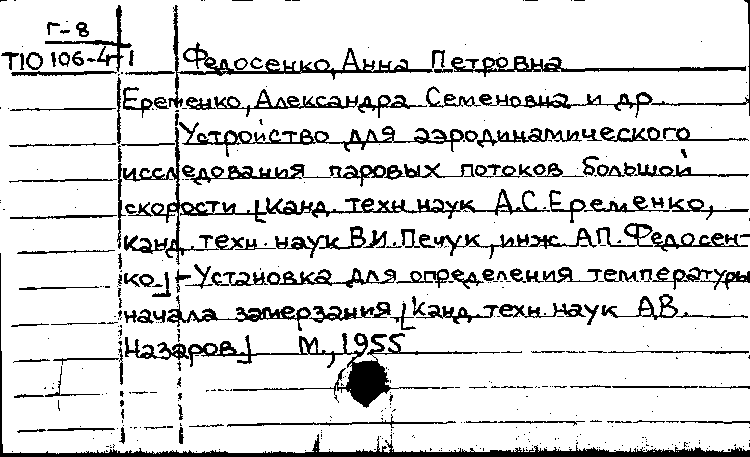 Г-8
Т10 106-4/1
Федосенко, Анна Петровна
Еременко, Александра Семеновна и др.
Устройство для аэродинамического
исследования паровых потоков большой
скорости. [Канд. техн. наук А.С. Еременко,
канд. техн. наук В.И. Печук, инж. А.П. Федосен-
ко.] - Установка для определения температуры
начала замерзания. [Канд. техн. наук А.В.
Назаров.] М., 1955.